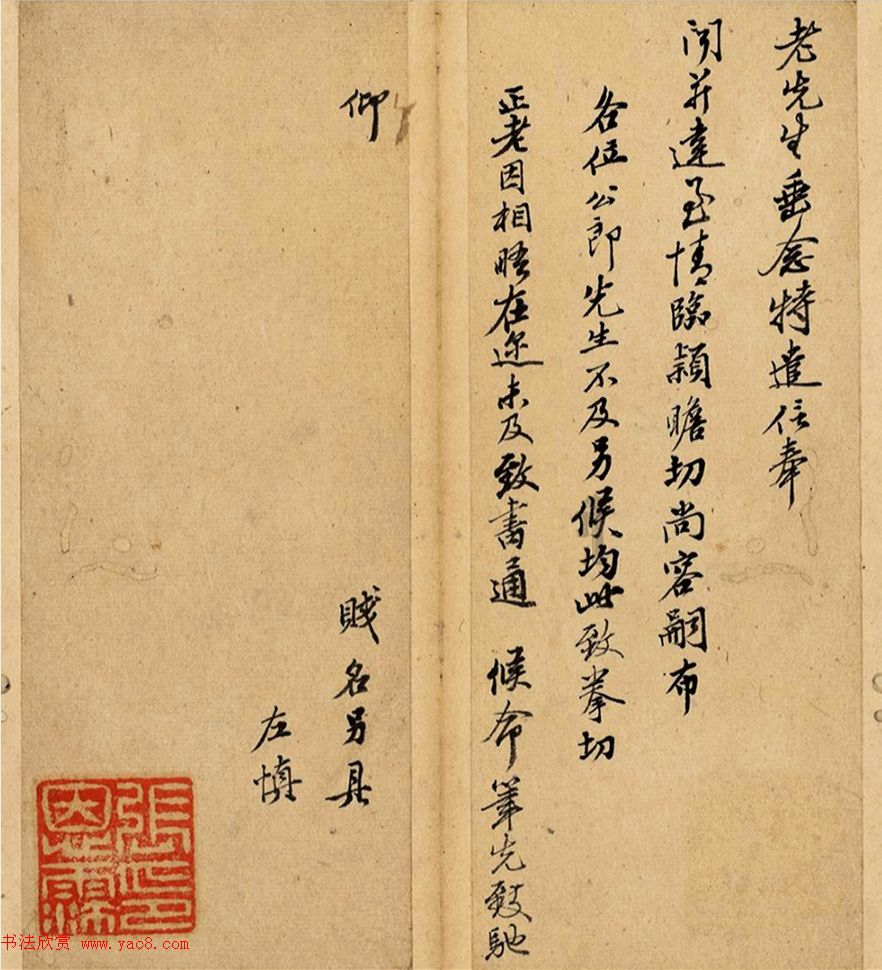 老先生垂念特遣信奉
聞并達至情臨穎瞻切尚容嗣布
各位公郎先生不及另候均此致拳切
正老因相晤在迩未及致書通 候命筆先致馳
仰
賤名另具
左慎
书法欣赏 www.yac8.com